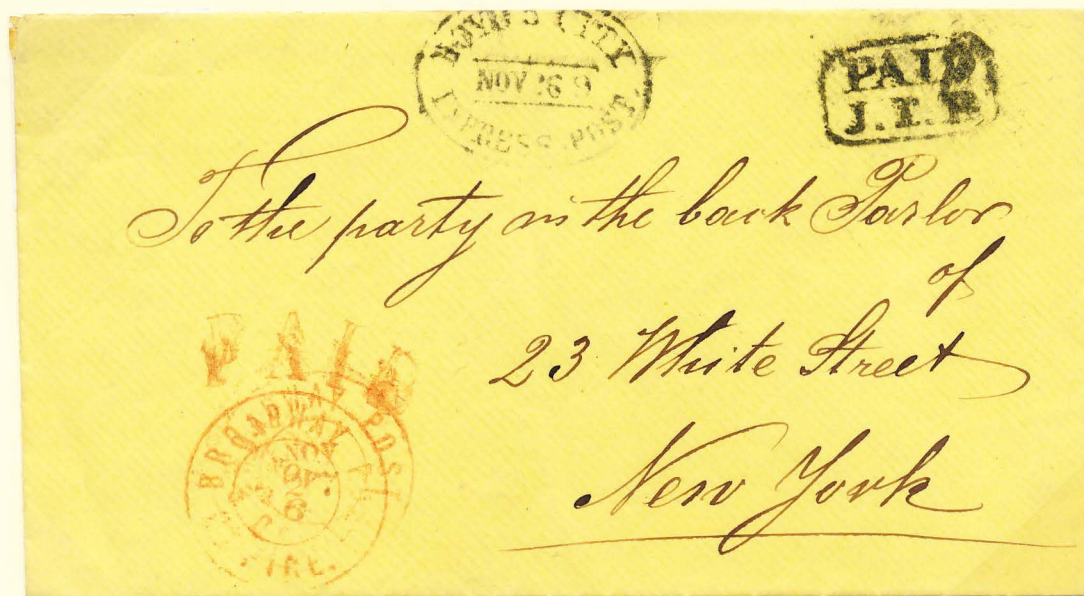 BOYD'S CITY
NOV 26 9
EXPRESS POST.
PAID
J.T.B
To the party in the back Parlor
of
23 White Street
New York
PAID
BROADWAY POST
NOV
26